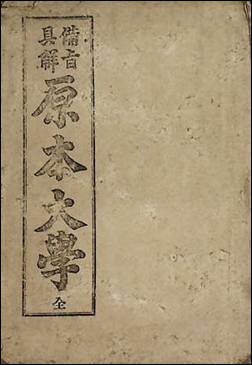 備旨
具解
原本大學
全